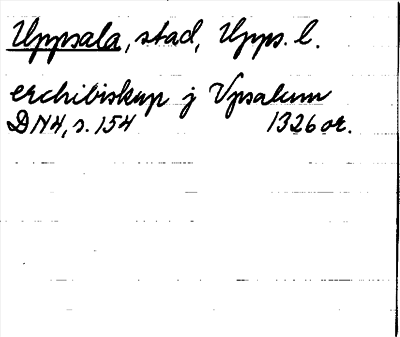 Uppsala, stad, Upps. l.
erchibiskup j Vpsalum
DN4, s. 154 1326 or.